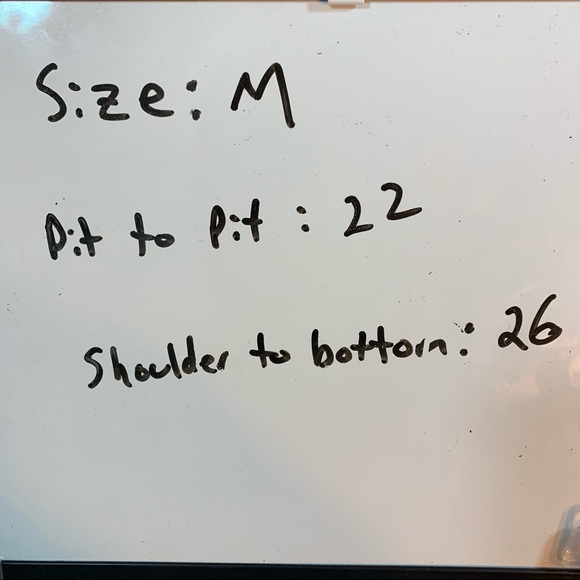 Size: M
Pit to Pit : 22
Shoulder to bottom: 26